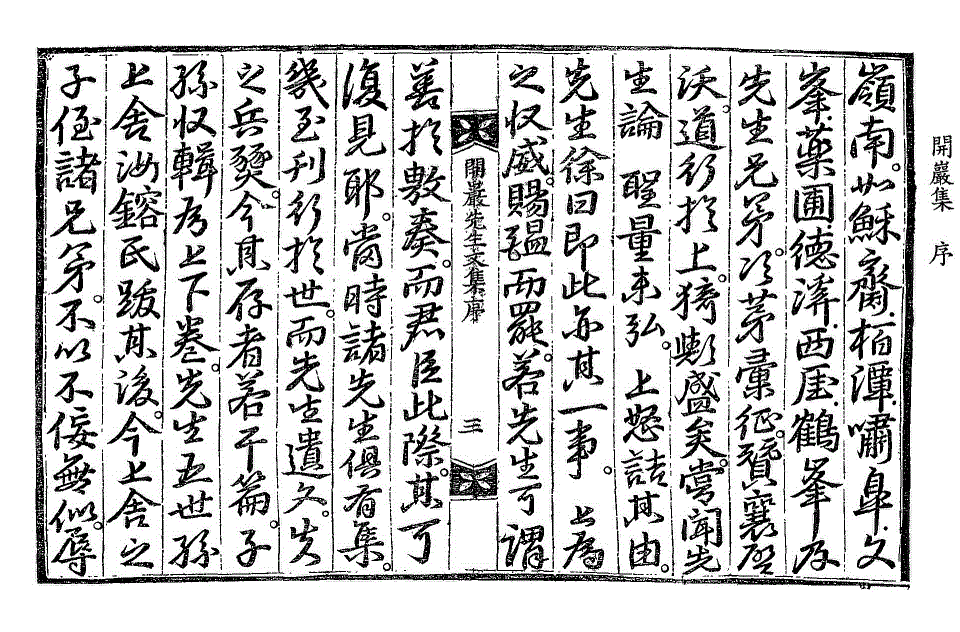 開巖集 序
嶺南。如穌齋.栢潭.嘯皐.文
峯.藥圃.德溪.西厓.鶴峯及
先生兄弟。次茅彙征。贊襄啓
沃。道行於上。猗歟盛矣。嘗聞先
生論 聖量未弘。 上怒詰其由。
先生徐曰卽此亦其一事。 上爲
之収威。賜醞而罷。若先生可謂
開巖先生文集序
三
善於敷奏。而君臣此際。其可
復見耶。當時諸先生俱有集。
幾至刊行於世。而先生遺文。失
之兵燹。今其存者若干篇。子
孫収輯爲上下卷。先生五世孫
上舍汝鎔氏跋其後。今上舍之
子侄諸兄弟。不以不佞無似。辱